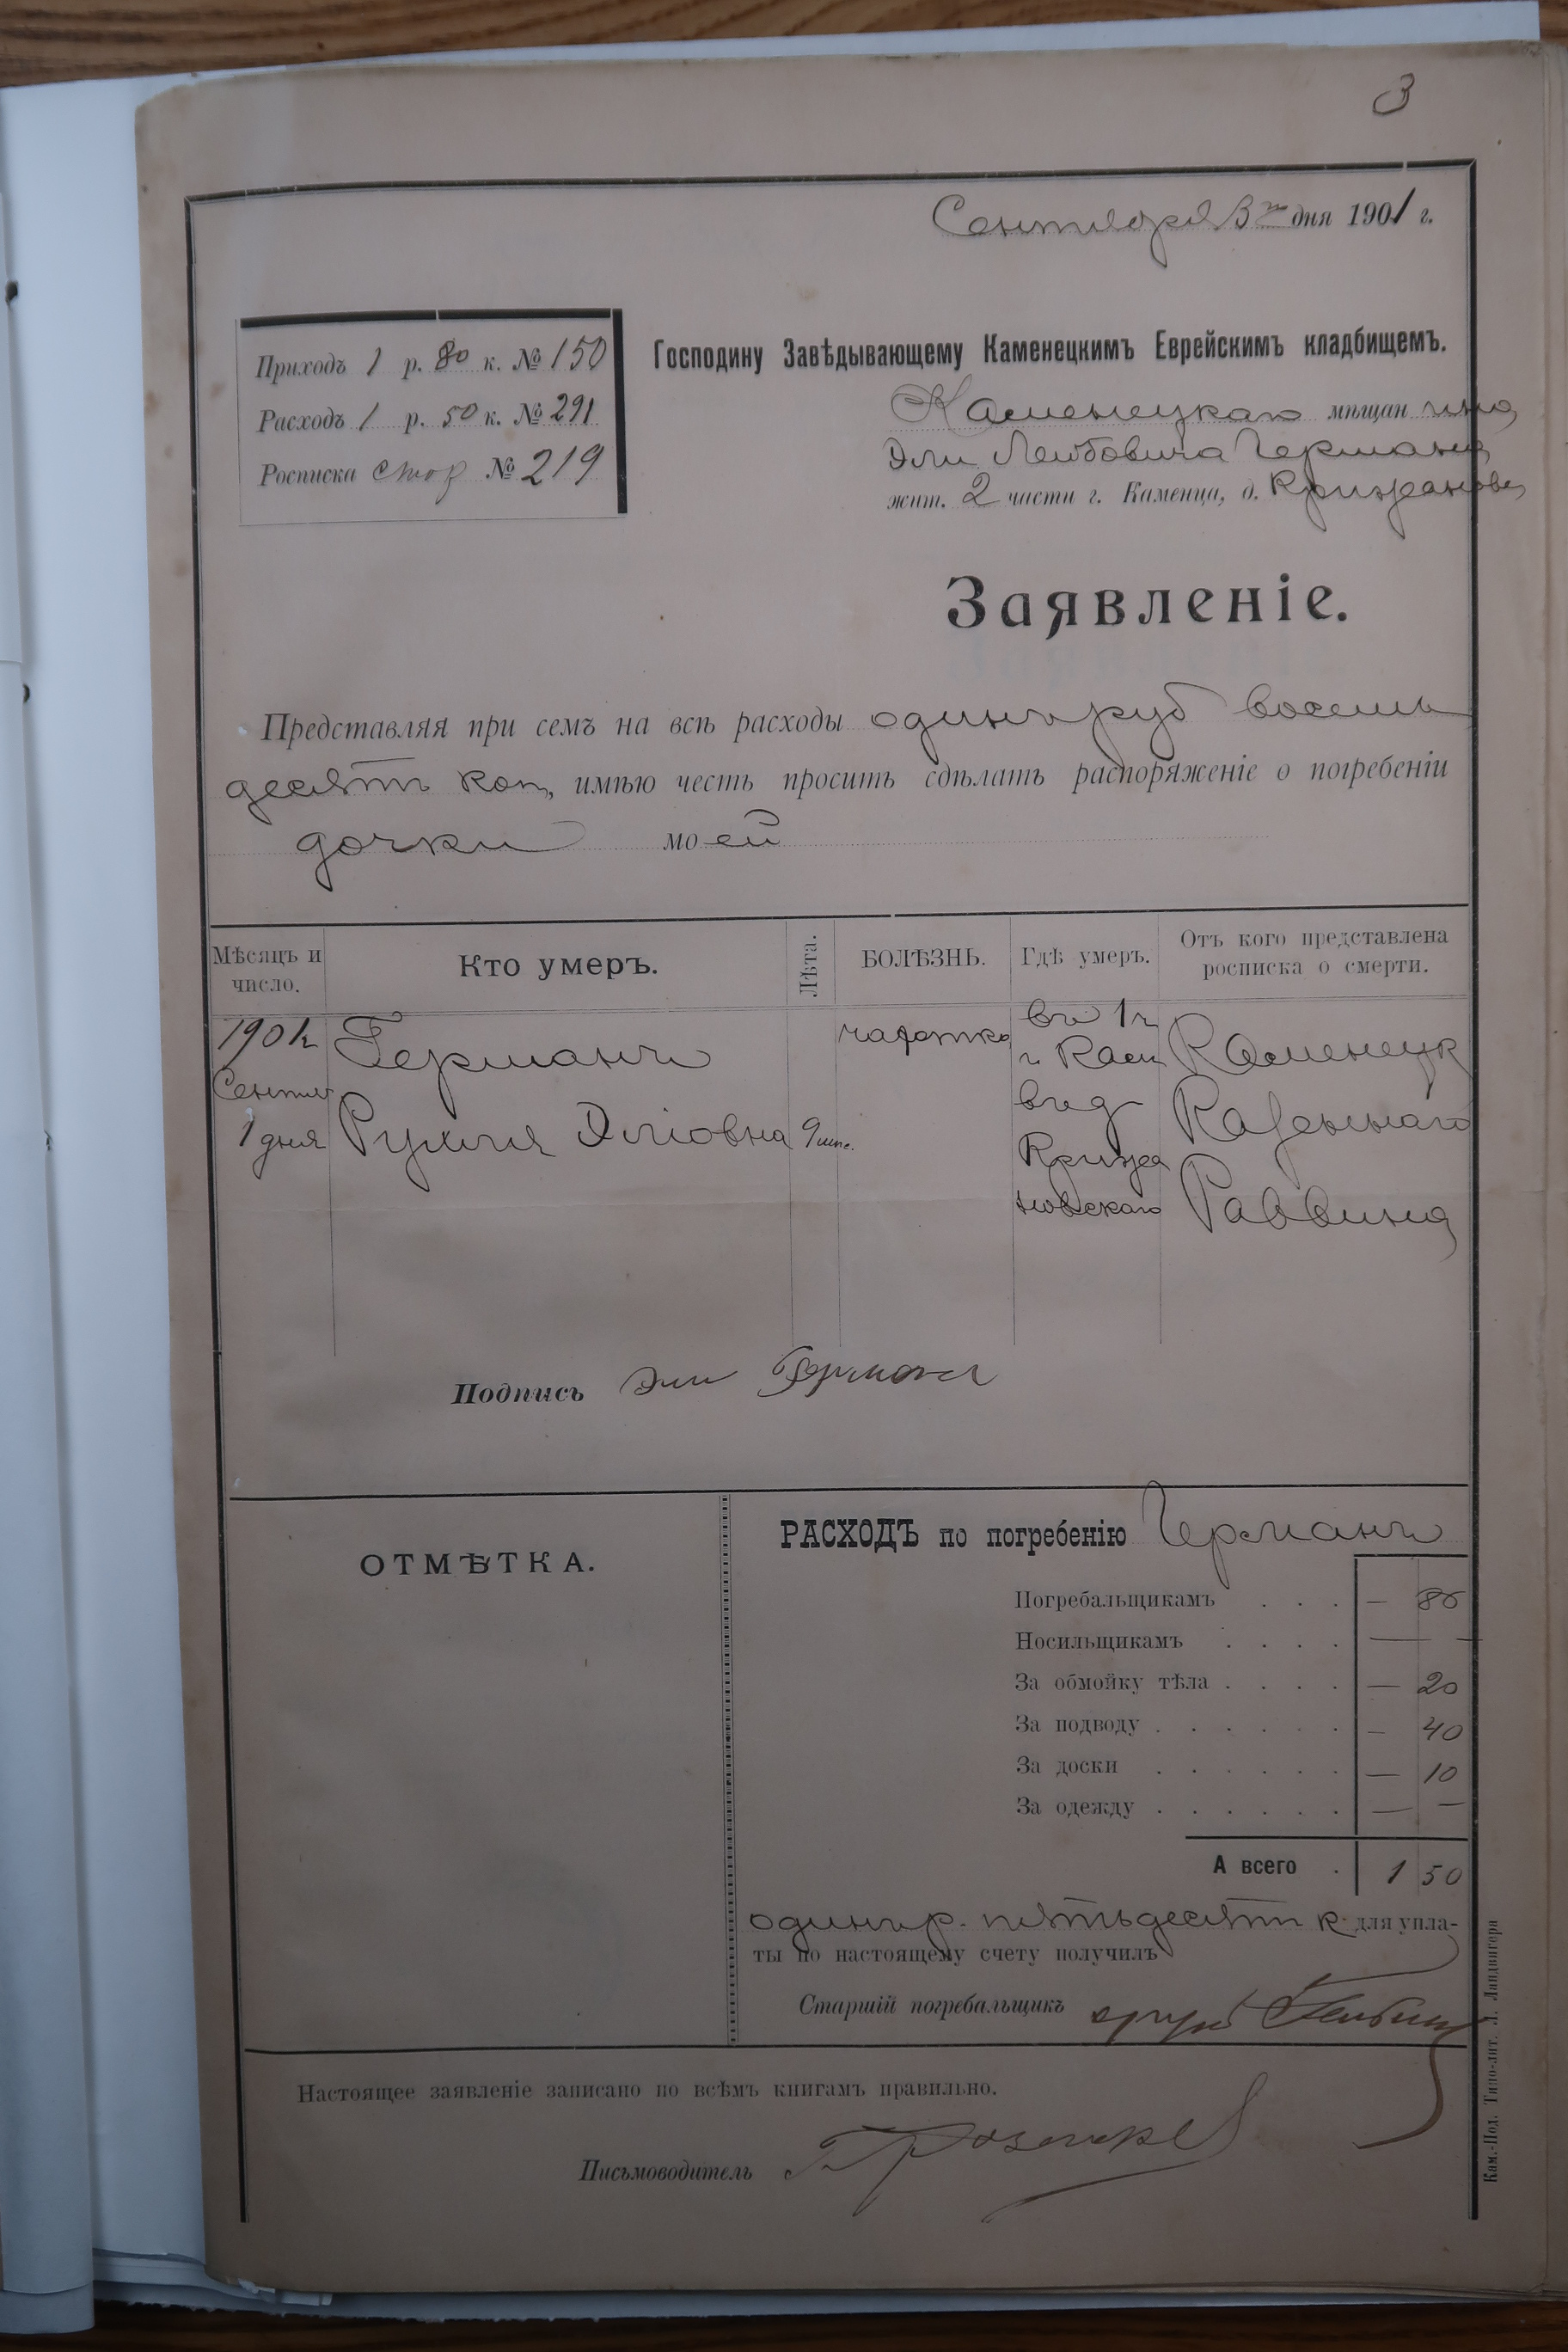 3
Сентября 3го дня 1901 г.
Приходъ 1 р. 80 к. № 150
Расходъ 1 р. 50 к. № 291
Росписка стор № 219
Господину Завѣдывающему Каменецкимъ Еврейскимъ кладбищемъ.
Каменецкаго мѣщанина
Эли Лейбовича Германа
жит. 2 части г. Каменца, д. Крижанов
Заявленіе.
Представляя при семъ на всѣ расходы одинъ руб восемь
десятъ коп, имѣю честь просить сдѣлать распоряженіе о погребеніи
дочки моей
Мѣсяцъ и число.
Кто умеръ.
Лѣта.
БОЛѢЗНЬ.
Гдѣ умеръ.
Отъ кого представлена росписка о смерти.
1901 г
Сентяб
1 дня
Германъ
Рухля Эліовна
9 мѣс.
чахотка
въ 1 ч
г Кам
въ д
Крижа
новскаго
Каменецк
Казеннаго
Раввина
Подпись Эли Герман
ОТМѢТКА.
РАСХОДЪ по погребенію Германъ
Погребальщикамъ . . . — 80
Носильщикамъ . . . . — —
За обмойку тѣла . . . . — 20
За подводу . . . . . . — 40
За доски . . . . . . — 10
За одежду . . . . . . — —
А всего . 1 50
одинъ р. пятьдесятъ к. для упла-
ты по настоящему счету получилъ
Старшій погребальщикъ
Настоящее заявленіе записано по всѣмъ книгамъ правильно.
Письмоводитель
Кам.-Под. Типо-лит. Л. Ландвигера